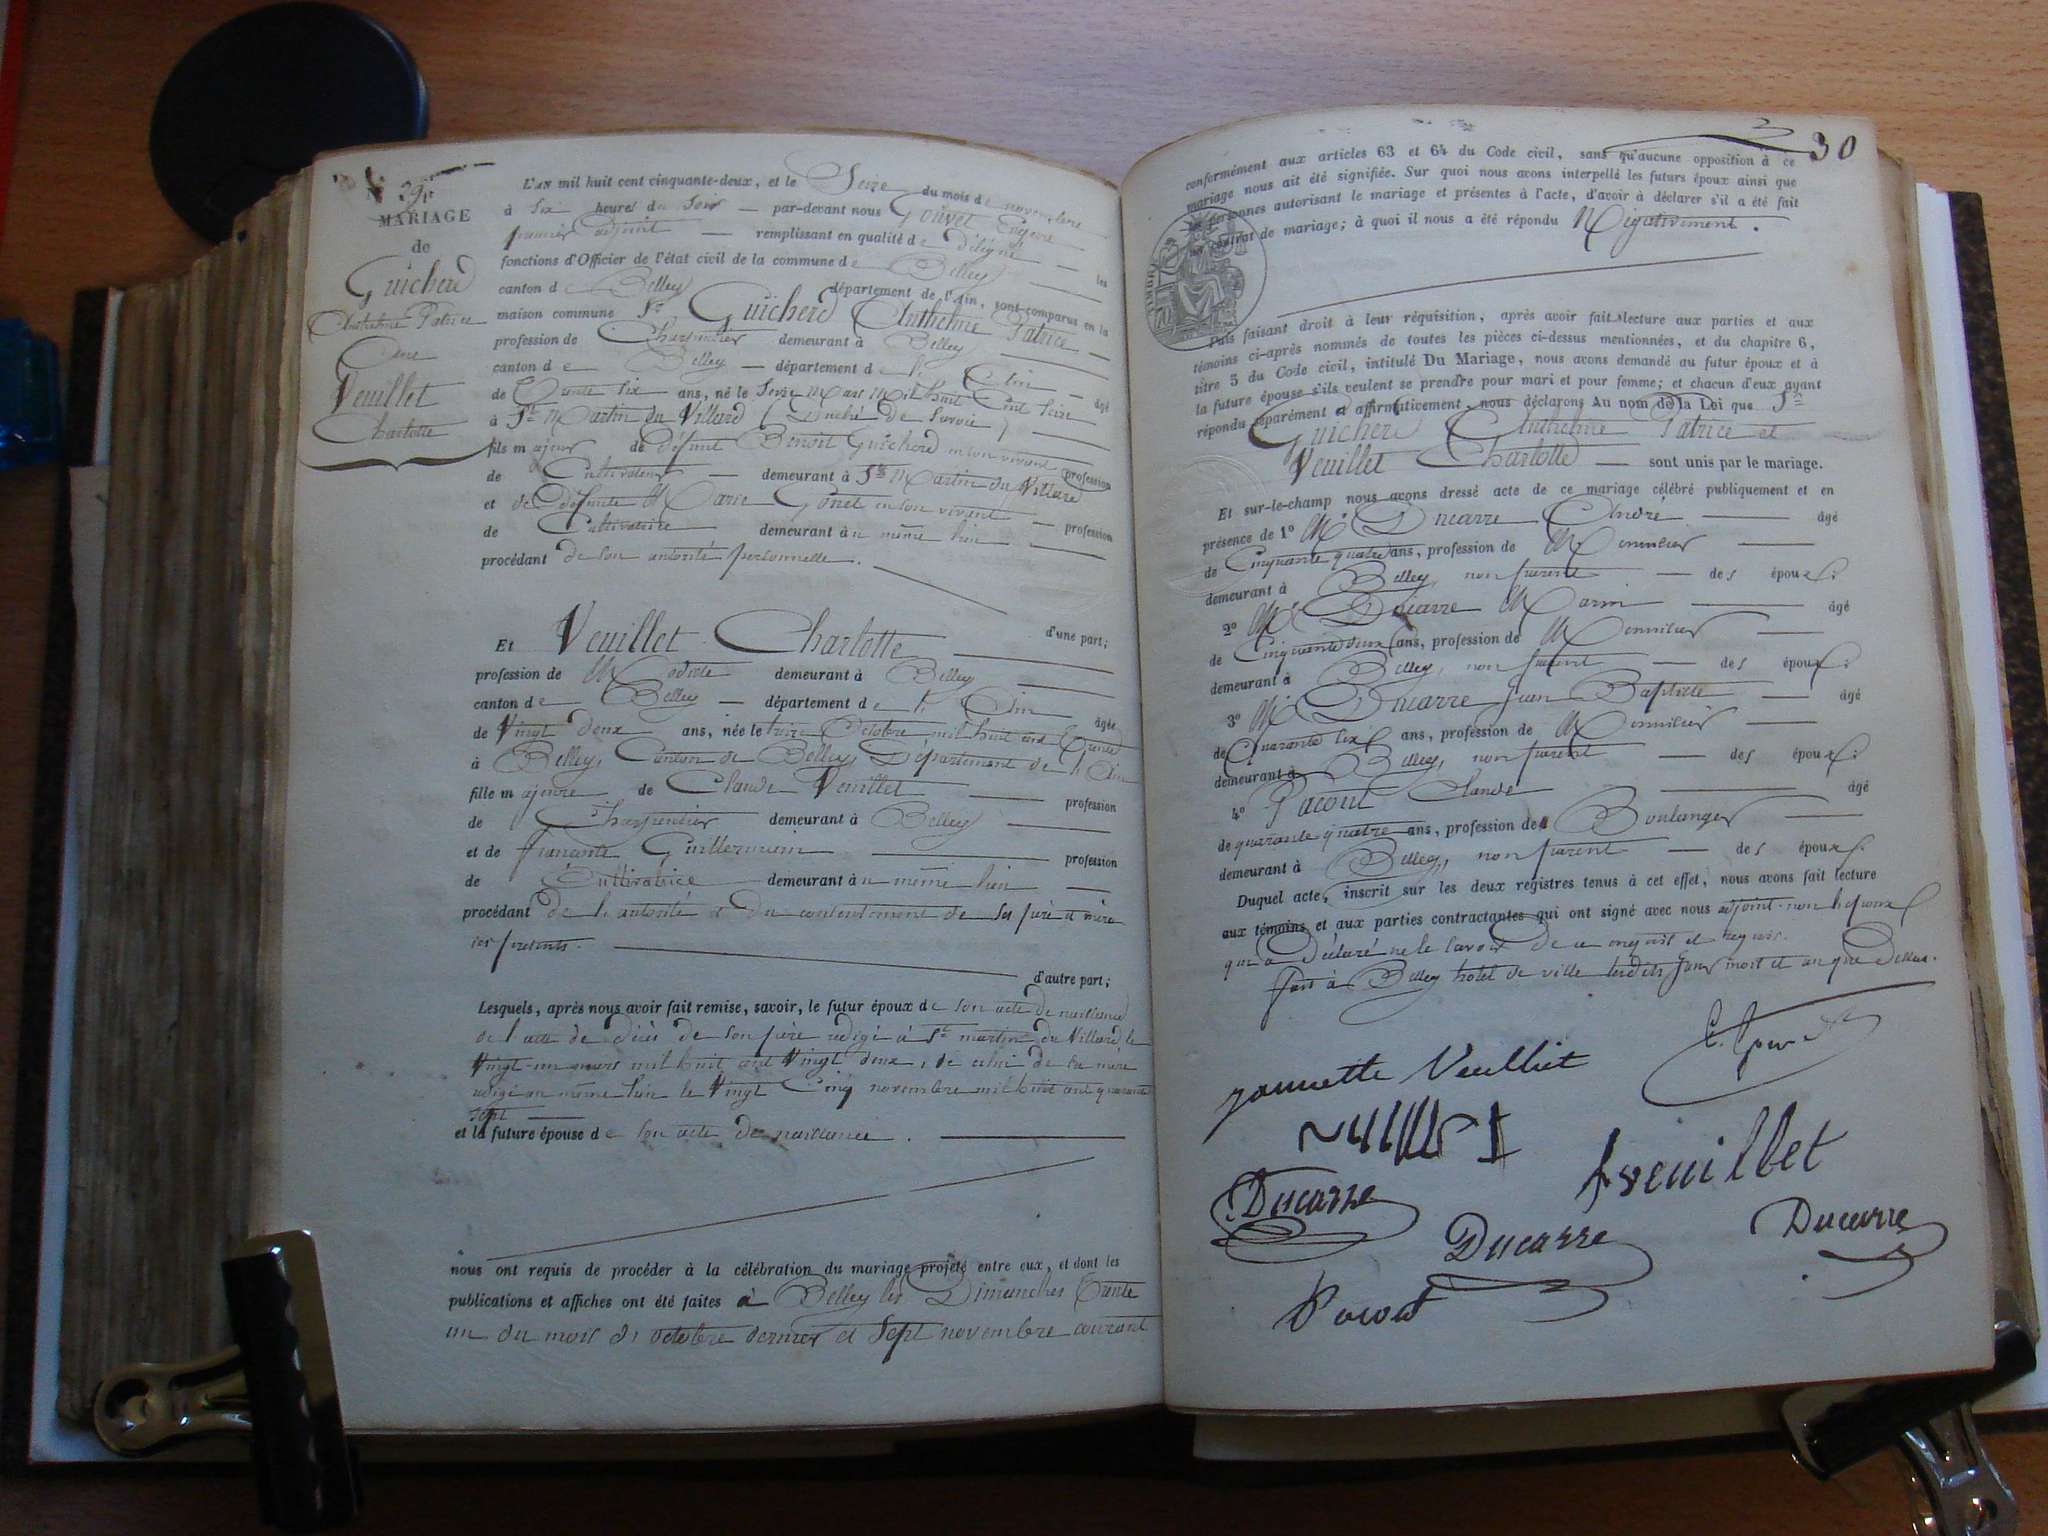 N° 29
MARIAGE
de
Guicherd
Anthelme Patrice
Veuillet
Charlotte
L'AN mil huit cent cinquante-deux, et le Seize du mois de novembre
à Six heures du Soir — par-devant nous Gouvet Eugene
premier adjoint — remplissant en qualité de délégué les
fonctions d'Officier de l'état civil de la commune de Belley
canton de Belley département de l'Ain, sont comparus en la
maison commune Sr Guicherd Anthelme Patrice
profession de Charpentier demeurant à Belley
canton de Belley — département de l'Ain âgé
de Trente Six ans, né le Seize Mars Mil huit Cent Seize
à St Martin du Villard (Duché de Savoie)
fils majeur de défunt Benoit Guicherd en son vivant profession
de Cultivateur demeurant à St Martin du Villard
et de défunte Marie Gonet en son vivant — profession
de Cultivatrice demeurant au même lieu
procédant de son autorité personnelle.
d'une part;
Et Veuillet Charlotte
profession de Modiste demeurant à Belley
canton de Belley — département de l'Ain âgée
de Vingt deux ans, née le treize Octobre mil huit cent Trente
à Belley, Canton de Belley, Département de l'Ain
fille majeure de Claude Veuillet profession
de Charpentier demeurant à Belley
et de Guillermin profession
de Cultivatrice demeurant au même lieu
procédant de l'autorité et du consentement de ses père et mère
ici présents.
d'autre part;
Lesquels, après nous avoir fait remise, savoir, le futur époux de son acte de naissance
de l'acte de décès de son père rédigé à St martin du Villard le
Vingt-un mars mil huit cent Vingt deux, de celui de sa mère
rédigé au même lieu le Vingt Cinq novembre mil huit cent quarante
sept
et la future épouse de son acte de naissance.
nous ont requis de procéder à la célébration du mariage projeté entre eux, et dont les
publications et affiches ont été faites à Belley les Dimanches Trente
un du mois d'octobre dernier et Sept novembre courant
30
conformément aux articles 63 et 64 du Code civil, sans qu'aucune opposition à ce
mariage nous ait été signifiée. Sur quoi nous avons interpellé les futurs époux ainsi que
personnes autorisant le mariage et présentes à l'acte, d'avoir à déclarer s'il a été fait
contrat de mariage; à quoi il nous a été répondu Négativement.
Puis faisant droit à leur réquisition, après avoir fait lecture aux parties et aux
témoins ci-après nommés de toutes les pièces ci-dessus mentionnées, et du chapitre 6,
titre 5 du Code civil, intitulé Du Mariage, nous avons demandé au futur époux et à
la future épouse s'ils veulent se prendre pour mari et pour femme; et chacun d'eux ayant
répondu séparément et affirmativement, nous déclarons Au nom de la Loi que Sr
Guicherd Anthelme Patrice et
Veuillet Charlotte — sont unis par le mariage.
Et sur-le-champ nous avons dressé acte de ce mariage célébré publiquement et en
présence de 1° Mr Ducarre André âgé
de Cinquante quatre ans, profession de Menuisier
demeurant à Belley, non parent — des époux;
2° Mr Ducarre Marin âgé
de Cinquante deux ans, profession de Menuisier
demeurant à Belley, non parent — des époux;
3° Mr Ducarre Jean Baptiste âgé
de Quarante Six ans, profession de Menuisier
demeurant à Belley, non parent — des époux;
4° Pacout Claude âgé
de quarante quatre ans, profession de Boulanger
demeurant à Belley, non parent — des époux.
Duquel acte, inscrit sur les deux registres tenus à cet effet, nous avons fait lecture
aux témoins et aux parties contractantes qui ont signé avec nous adjoint non l'epoux
qui a déclaré ne le savoir de ce enquis et requis.
fait à Belley hotel de ville lesdits jour mois et an que dessus.
Veuillet
Ducarre
Ducarre
Ducarre
Pacout